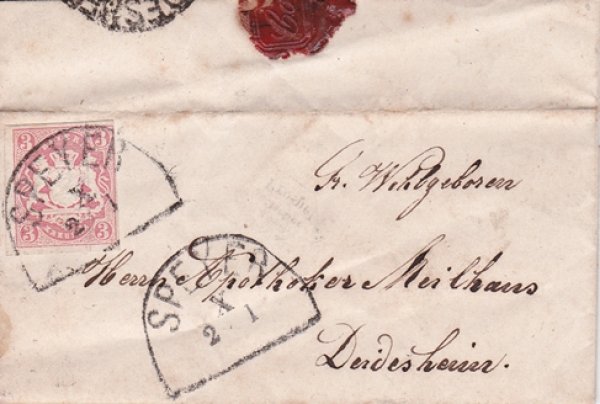 3 3
SPEYER
X
2 1
3 3
Sr. Wohlgeboren
SPEYER
X
2 1
Herrn Apotheker Meilhaus
Deidesheim.